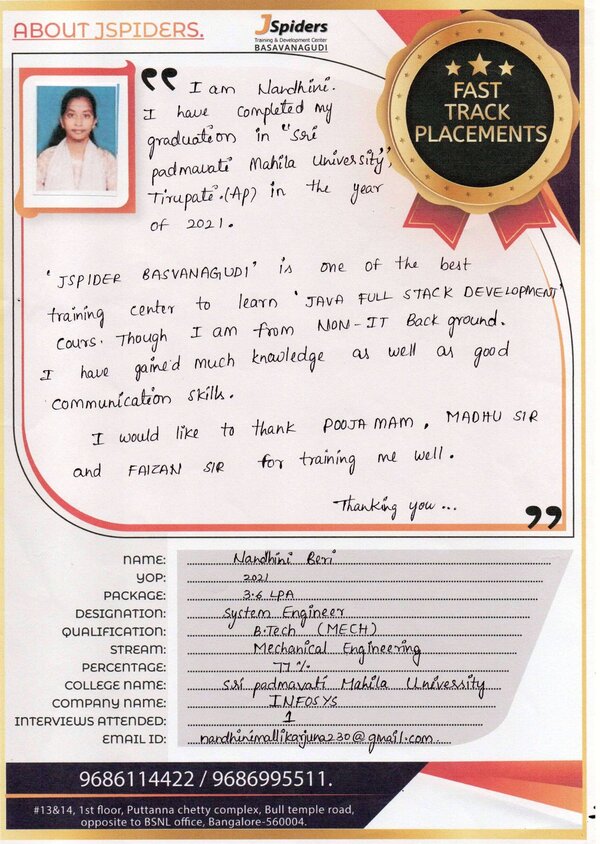 ABOUT JSPIDERS.
JSpiders
Training & Development Center
BASAVANAGUDI
FAST
TRACK
PLACEMENTS
“ I am Nandhini.
I have completed my
graduation in "Sri
padmavati Mahila University",
Tirupati.(Ap) in the year
of 2021.
'JSPIDER BASVANAGUDI' is one of the best
training center to learn 'JAVA FULL STACK DEVELOPMENT'
cours. Though I am from NON-IT Back ground.
I have gained much knowledge as well as good
communication skills.
I would like to thank POOJA MAM, MADHU SIR
and FAIZAN SIR for training me well.
Thanking you... ”
NAME: Nandhini Beri
YOP: 2021
PACKAGE: 3.6 LPA
DESIGNATION: System Engineer
QUALIFICATION: B.Tech (MECH)
STREAM: Mechanical Engineering
PERCENTAGE: 77%
COLLEGE NAME: Sri padmavati Mahila University
COMPANY NAME: INFOSYS
INTERVIEWS ATTENDED: 1
EMAIL ID: nandhinimallikarjuna230@gmail.com
9686114422 / 9686995511.
#13&14, 1st floor, Puttanna chetty complex, Bull temple road,
opposite to BSNL office, Bangalore-560004.